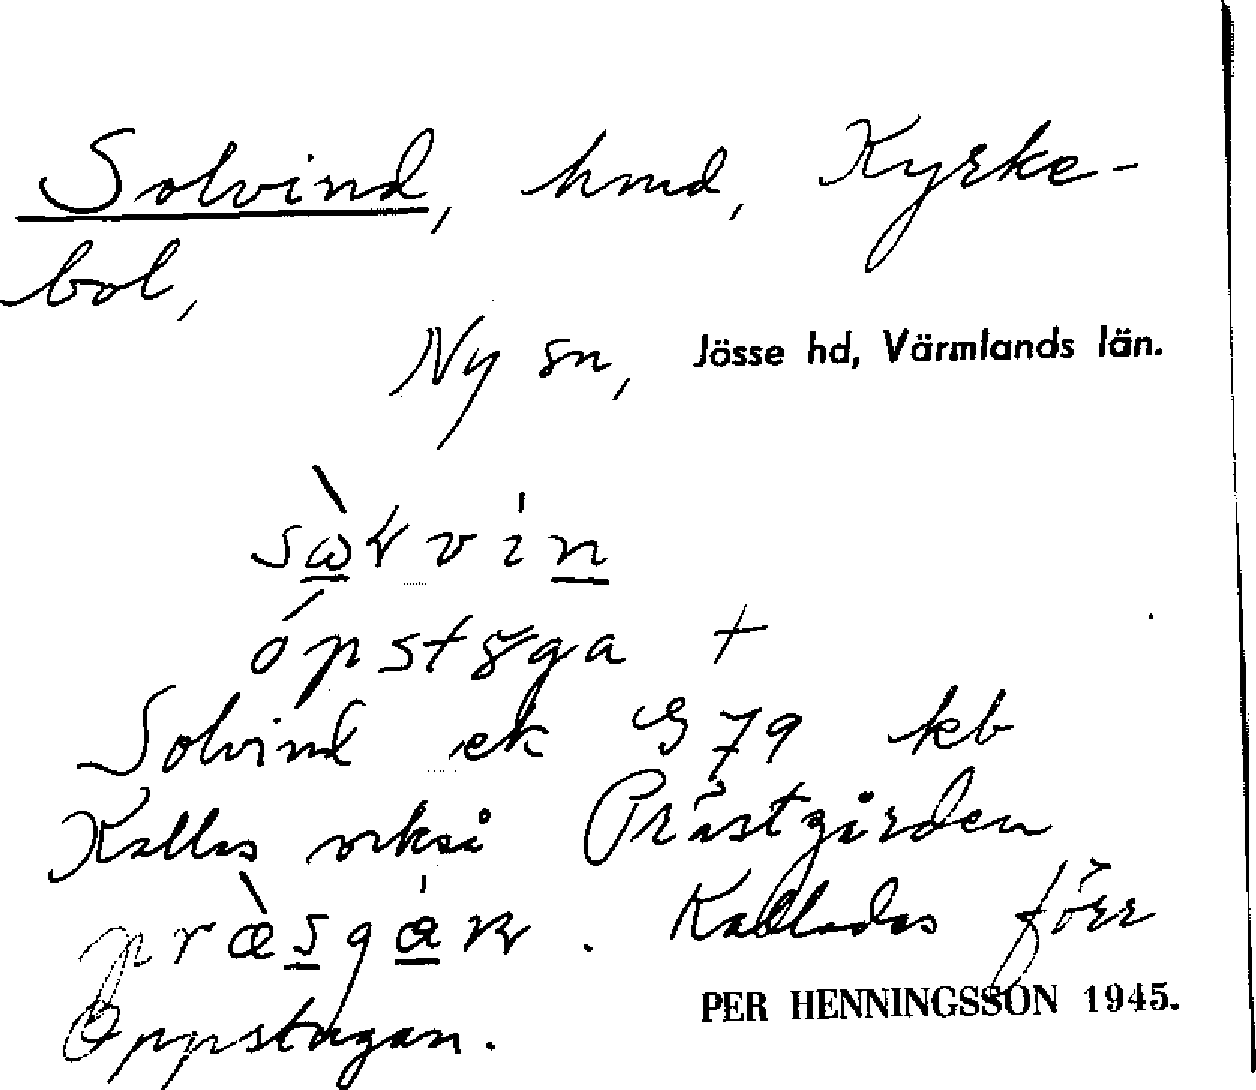 Solvind, hmd, Kyrke-
bol,
Ny sn, Jösse hd, Värmlands län.
sὼɽvín
ópstɤga +
Solvind ek G 79 kb
Kallas också Prästgården
præ̀sgáɳ. Kallades förr
Oppstugan.
PER HENNINGSSON 1945.